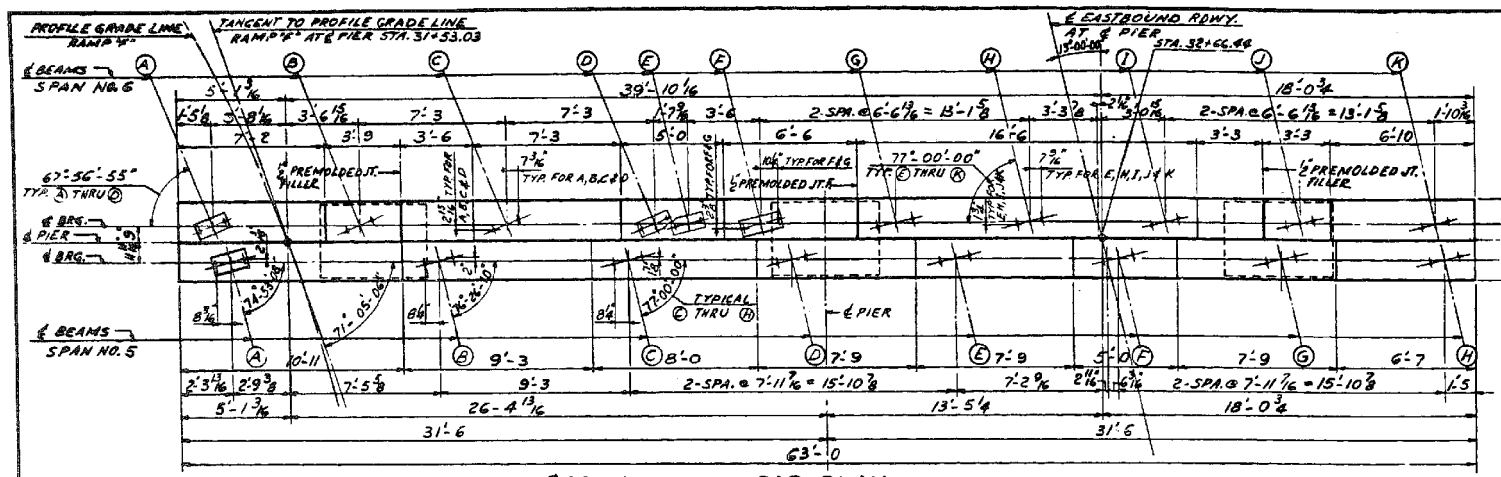 PROFILE GRADE LINE
RAMP "F"
TANGENT TO PROFILE GRADE LINE
RAMP "F" AT ℄ PIER STA. 31+53.03
℄ EASTBOUND RDWY.
AT ℄ PIER
STA. 32+66.44
13°-00'-00"
℄ BEAMS
SPAN NO. 6
A B C D E F G H I J K
5'-1 3/16 39'-10 1/16 18'-0 3/4
1'-5 1/8 3'-8 1/16 3'-6 15/16 7'-3 7'-3 1'-7 9/16 3'-6 2-SPA. @ 6'-6 13/16 = 13'-1 5/8 3'-3 7/8 2 11/16 3'-0 15/16 2-SPA @ 6'-6 13/16 = 13'-1 5/8 1'-10 3/16
7'-2 3'-9 3'-6 7'-3 5'-0 6'-6 16'-6 3'-3 3'-3 6'-10
67°-56'-55"
TYP. A THRU D
PREMOLDED JT.
FILLER
2 11/16" TYP. FOR
A, B, C & D
7 3/16"
TYP. FOR A, B, C & D
TYP. FOR F & G
TYP. FOR F & G
1/2" PREMOLDED JT. F.
77°-00'-00"
TYP. E THRU K
TYP. FOR
E, H, I, J & K
7 9/16"
TYP. FOR E, H, I, J & K
1/2" PREMOLDED JT.
FILLER
℄ BRG.
℄ PIER
℄ BRG.
74°-53'-08"
71°-05'-06"
76°-26'-10"
77°-00'-00"
TYPICAL
C THRU H
8 3/16" 8 1/4" 8 1/4"
℄ PIER
℄ BEAMS
SPAN NO. 5
A B C D E F G H
10'-11 9'-3 8'-0 7'-9 7'-9 5'-0 7'-9 6'-7
2'-3 13/16 2'-9 3/8 7'-5 5/8 9'-3 2-SPA. @ 7'-11 7/16 = 15'-10 7/8 7'-2 9/16 2 11/16 6 3/16 2-SPA. @ 7'-11 7/16 = 15'-10 7/8 1'-5
5'-1 3/16 26'-4 13/16 13'-5 1/4 18'-0 3/4
31'-6 31'-6
63'-0